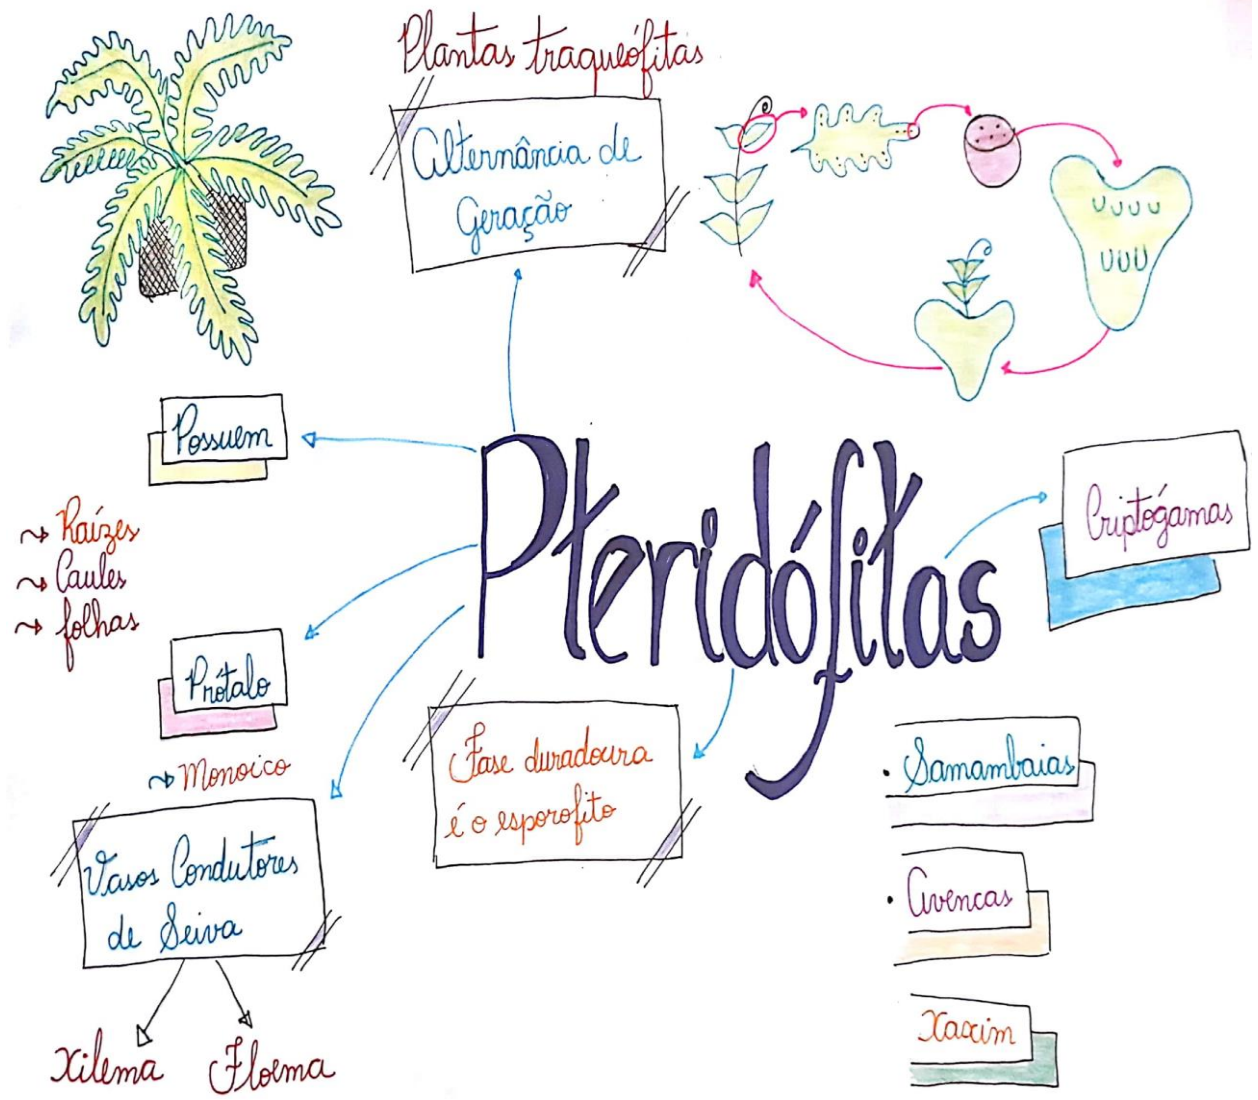 Plantas traqueófitas
Alternância de
Geração
Possuem
Raízes
Caules
folhas
Pteridófitas
Criptógamas
Prótalo
Monoico
Fase duradoura
é o esporofito
Vasos Condutores
de Seiva
Xilema Floema
• Samambaias
• Avencas
Xaxim